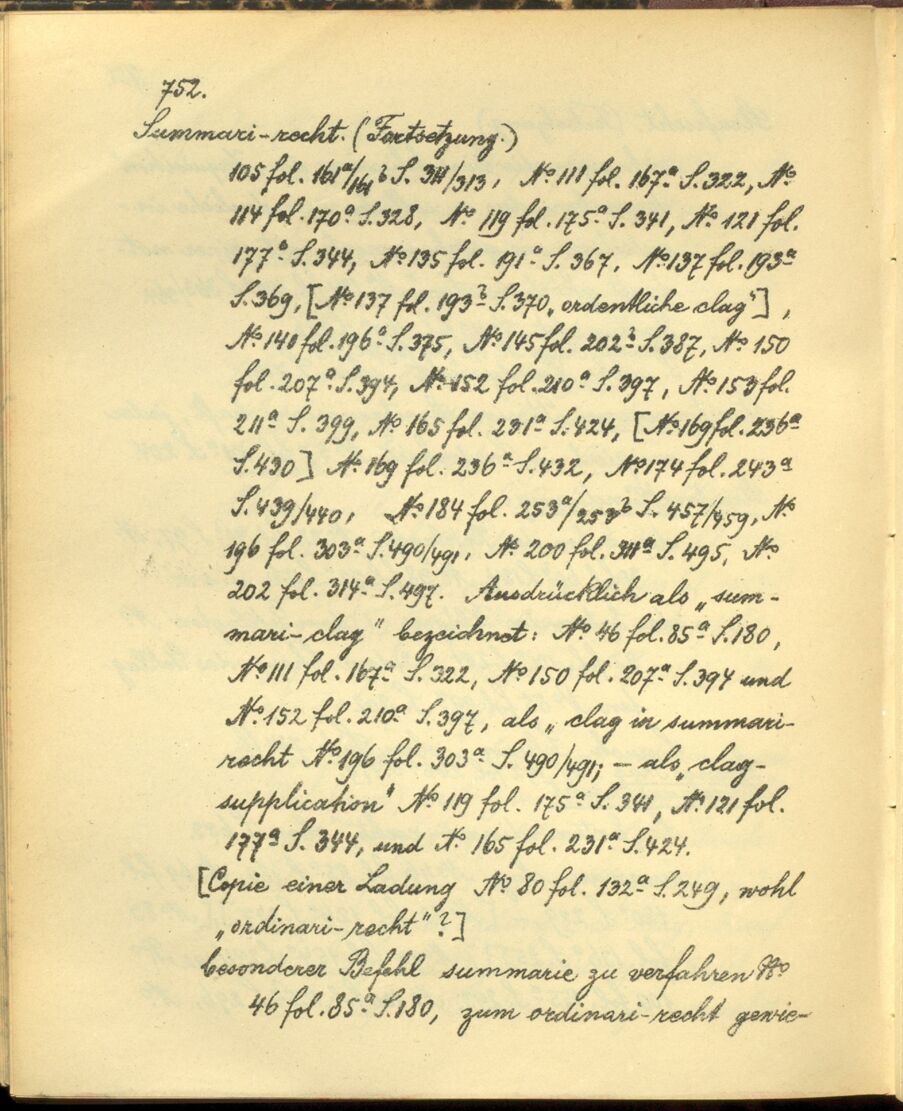 752.
Summari-recht. (Fortsetzung.)
105 fol. 161a/161b S. 311/313, No 111 fol. 167a S. 322, No
114 fol. 170a S. 328, No 119 fol. 175a S. 341, No 121 fol.
177a S. 344, No 135 fol. 191a S. 367, No 137 fol. 193a
S. 369, [No 137 fol. 193b S. 370 „ordentliche clag"],
No 140 fol. 196a S. 375, No 145 fol. 202b S. 387, No 150
fol. 207a S. 394, No 152 fol. 210a S. 397, No 153 fol.
211a S. 399, No 165 fol. 231a S. 424, [No 169 fol. 236a
S. 430] No 169 fol. 236a S. 432, No 174 fol. 243a
S. 439/440, No 184 fol. 253a/253b S. 457/459, No
196 fol. 303a S. 490/491, No 200 fol. 311a S. 495, No
202 fol. 314a S. 497. Ausdrücklich als „sum-
mari-clag" bezeichnet: No 46 fol. 85a S. 180,
No 111 fol. 167a S. 322, No 150 fol. 207a S. 394 und
No 152 fol. 210a S. 397, als „clag in summari-
recht No 196 fol. 303a S. 490/491; – als „clag-
supplication" No 119 fol. 175a S. 341, No 121 fol.
177a S. 344, und No 165 fol. 231a S. 424.
[Copie einer Ladung No 80 fol. 132a S. 249, wohl
„ordinari-recht"?]
besonderer Befehl summarie zu verfahren No
46 fol. 85a S. 180, zum ordinari-recht gewie-